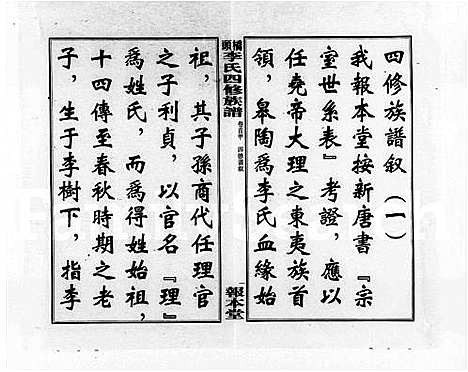 四修族譜叙(一)
我報本堂按新唐書『宗
室世系表』考證，應以
任堯帝大理之東夷族首
領，皋陶爲李氏血緣始
李氏四修族譜
報本堂
祖，其子孫商代任理官
之子利貞，以官名『理』
爲姓氏，而爲得姓始祖，
十四傳至春秋時期之老
子，生于李樹下，指李